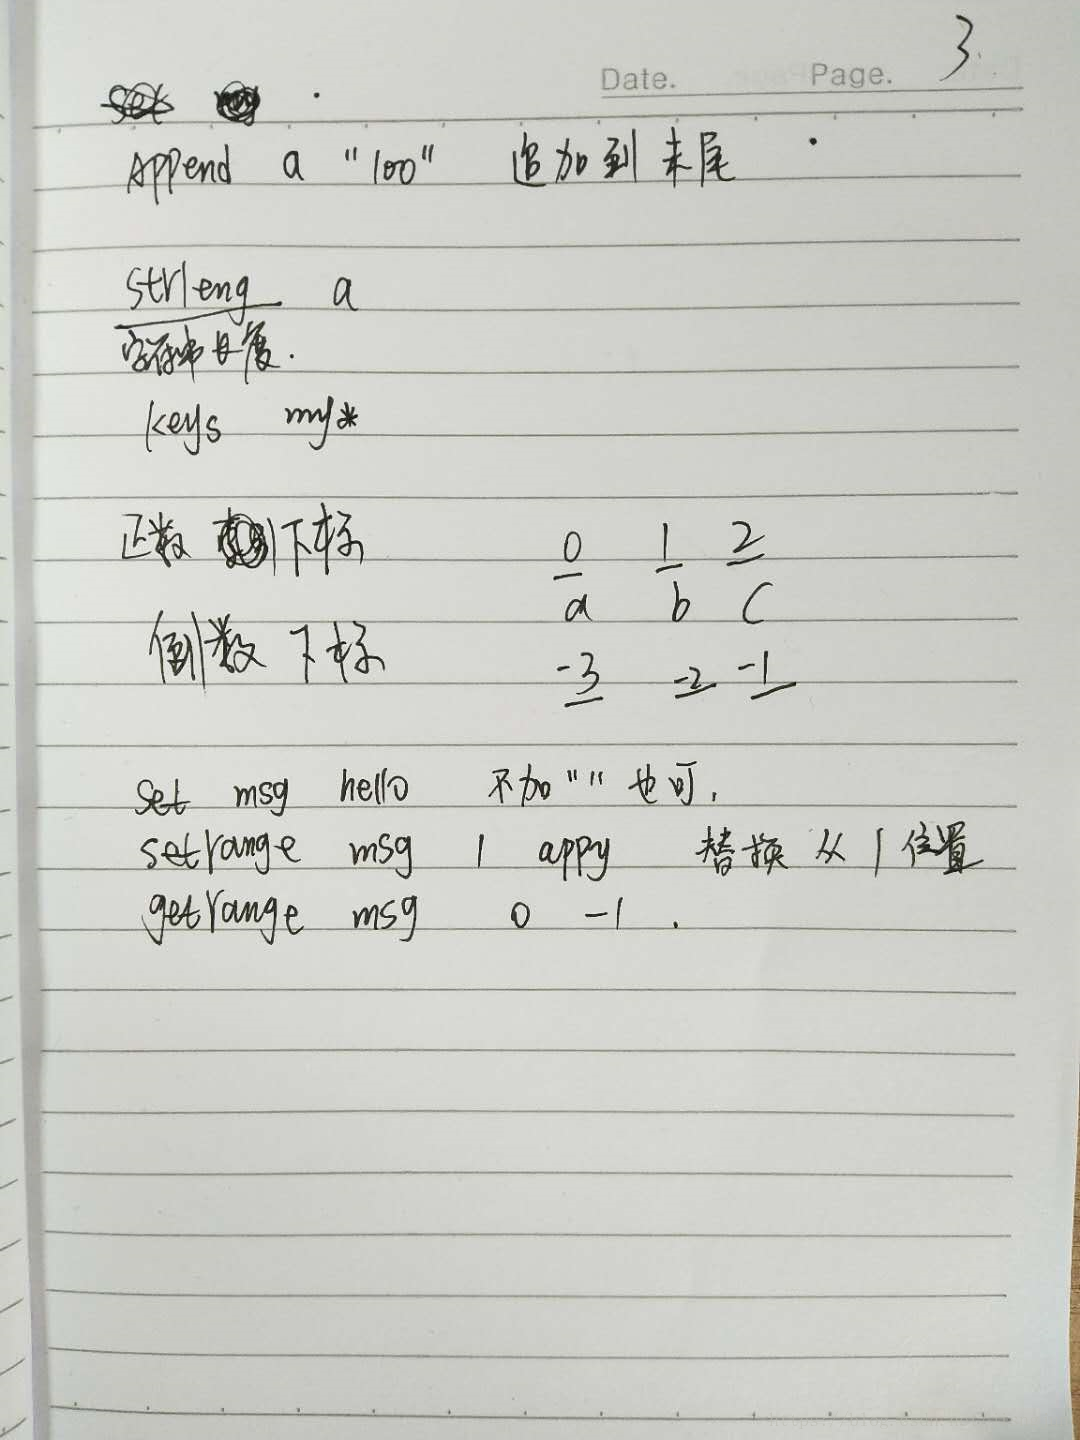 Date. Page. 3.
Append a "100" 追加到末尾
strleng a
字符串长度.
keys my*
正数 下标 0 1 2
a b c
倒数 下标 -3 -2 -1
set msg hello 不加"" 也可.
setrange msg 1 appy 替换 从 1 位置
getrange msg 0 -1 .